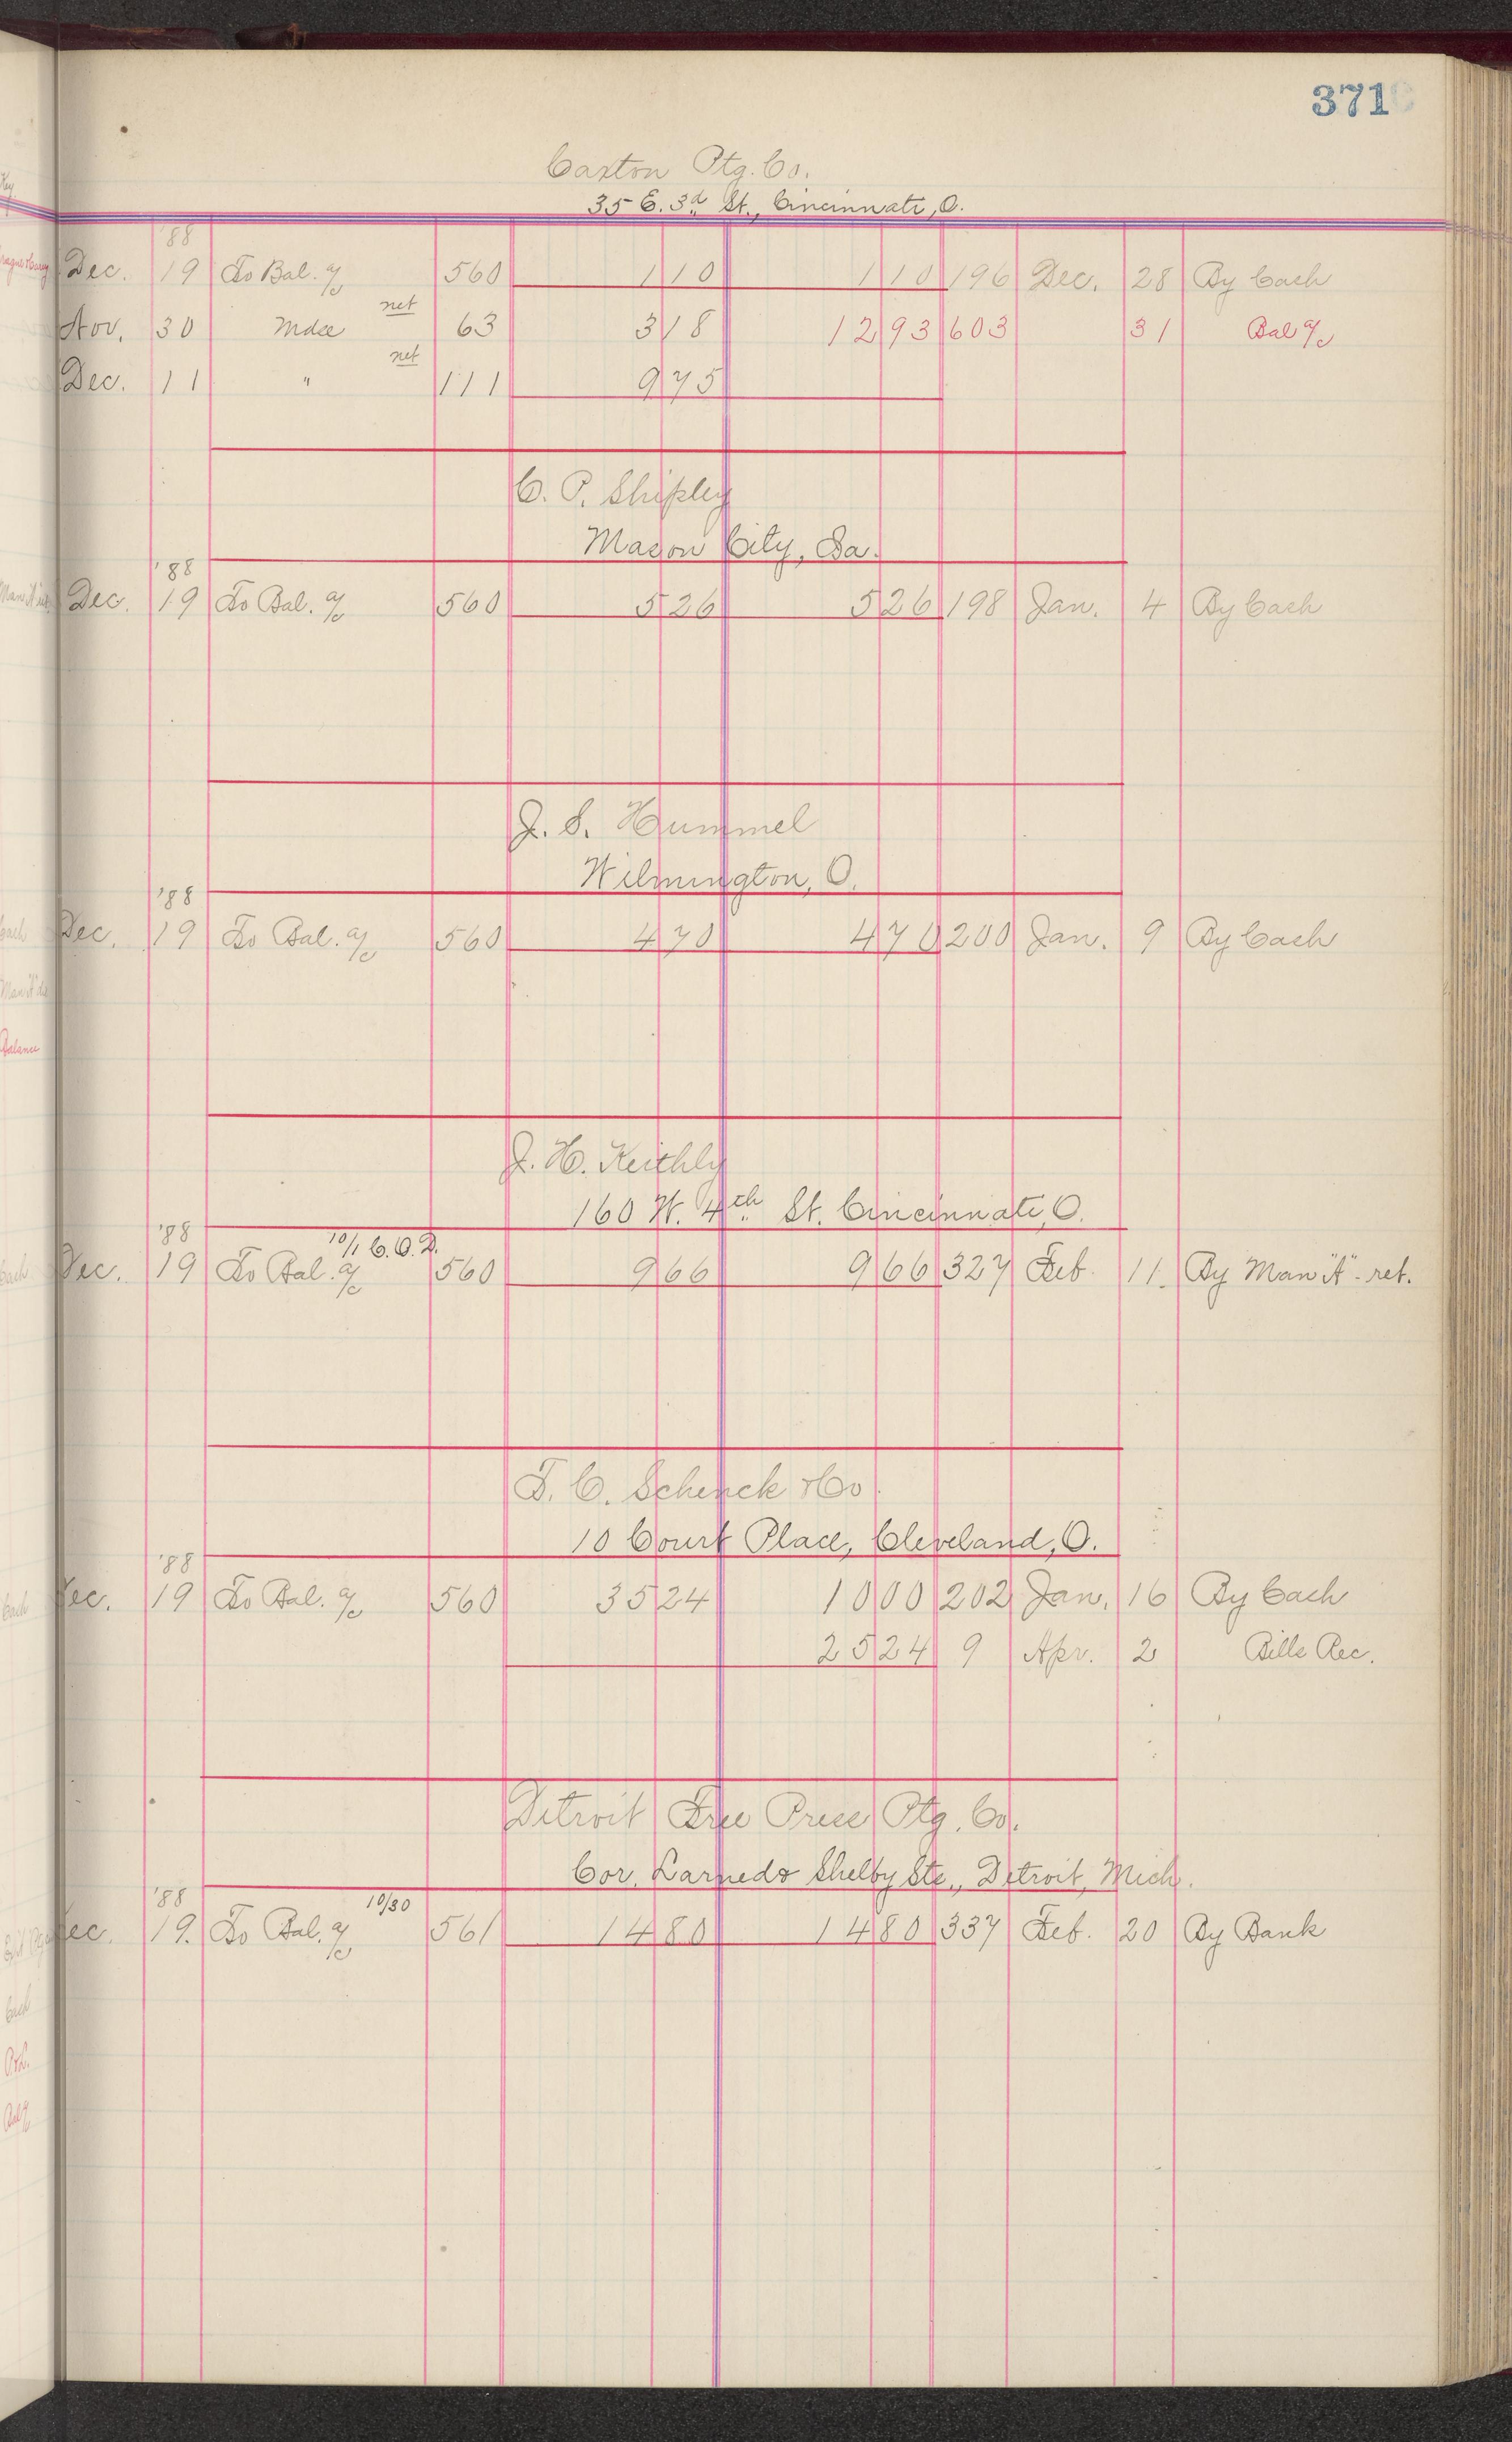 371
Caxton Ptg. Co.
35 E. 3d St., Cincinnati, O.
'88
Dec. 19 To Bal. a/c 560 1 10 1 10 196 Dec. 28 By Cash
Nov. 30 Mdse net 63 3 18 12 93 603 31 Bal a/c
Dec. 11 " net 111 9 75
C. P. Shipley
Mason City, Ia.
'88
Dec. 19 To Bal. a/c 560 5 26 5 26 198 Jan. 4 By Cash
J. S. Hummel
Wilmington, O.
'88
Dec. 19 To Bal. a/c 560 4 70 4 70 200 Jan. 9 By Cash
J. H. Keithly
160 W. 4th St. Cincinnati, O.
'88 10/1 C.O.D.
Dec. 19 To Bal. a/c 560 9 66 9 66 327 Feb. 11. By Man "A" - ret.
T. C. Schenck & Co.
10 Court Place, Cleveland, O.
'88
Dec. 19 To Bal. a/c 560 35 24 10 00 202 Jan. 16 By Cash
25 24 9 Apr. 2 Bills Rec.
Detroit Free Press Ptg. Co.
Cor. Larned & Shelby Sts., Detroit, Mich.
'88 10/30
Dec. 19. To Bal. a/c 561 14 80 14 80 337 Feb. 20 By Bank